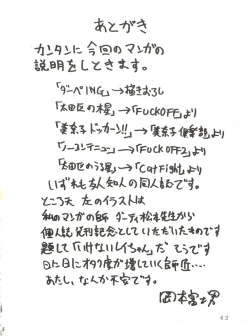 あとがき
カンタンに今回のマンガの
説明をしときます。
「ダーペING」→描きむろし
「太田区の木星」→「FUCK OFF」より
「美奈子ドッカーン!!」→「美奈子倶楽部」より
「ノーコンテニュー」→「FUCKOFF2」より
「太田区のうる星」→「Cat Fight」より
いずれも友人知人の同人誌です。
ところで 左のイラストは
私のマンガの師 ダーティ松本先生から
個人誌発刊記念としていただいたものです
題して「いけないレイちゃん」だ そうです
日に日にオタク度が増していく師匠‥‥
あたし、なんか不安です。
42